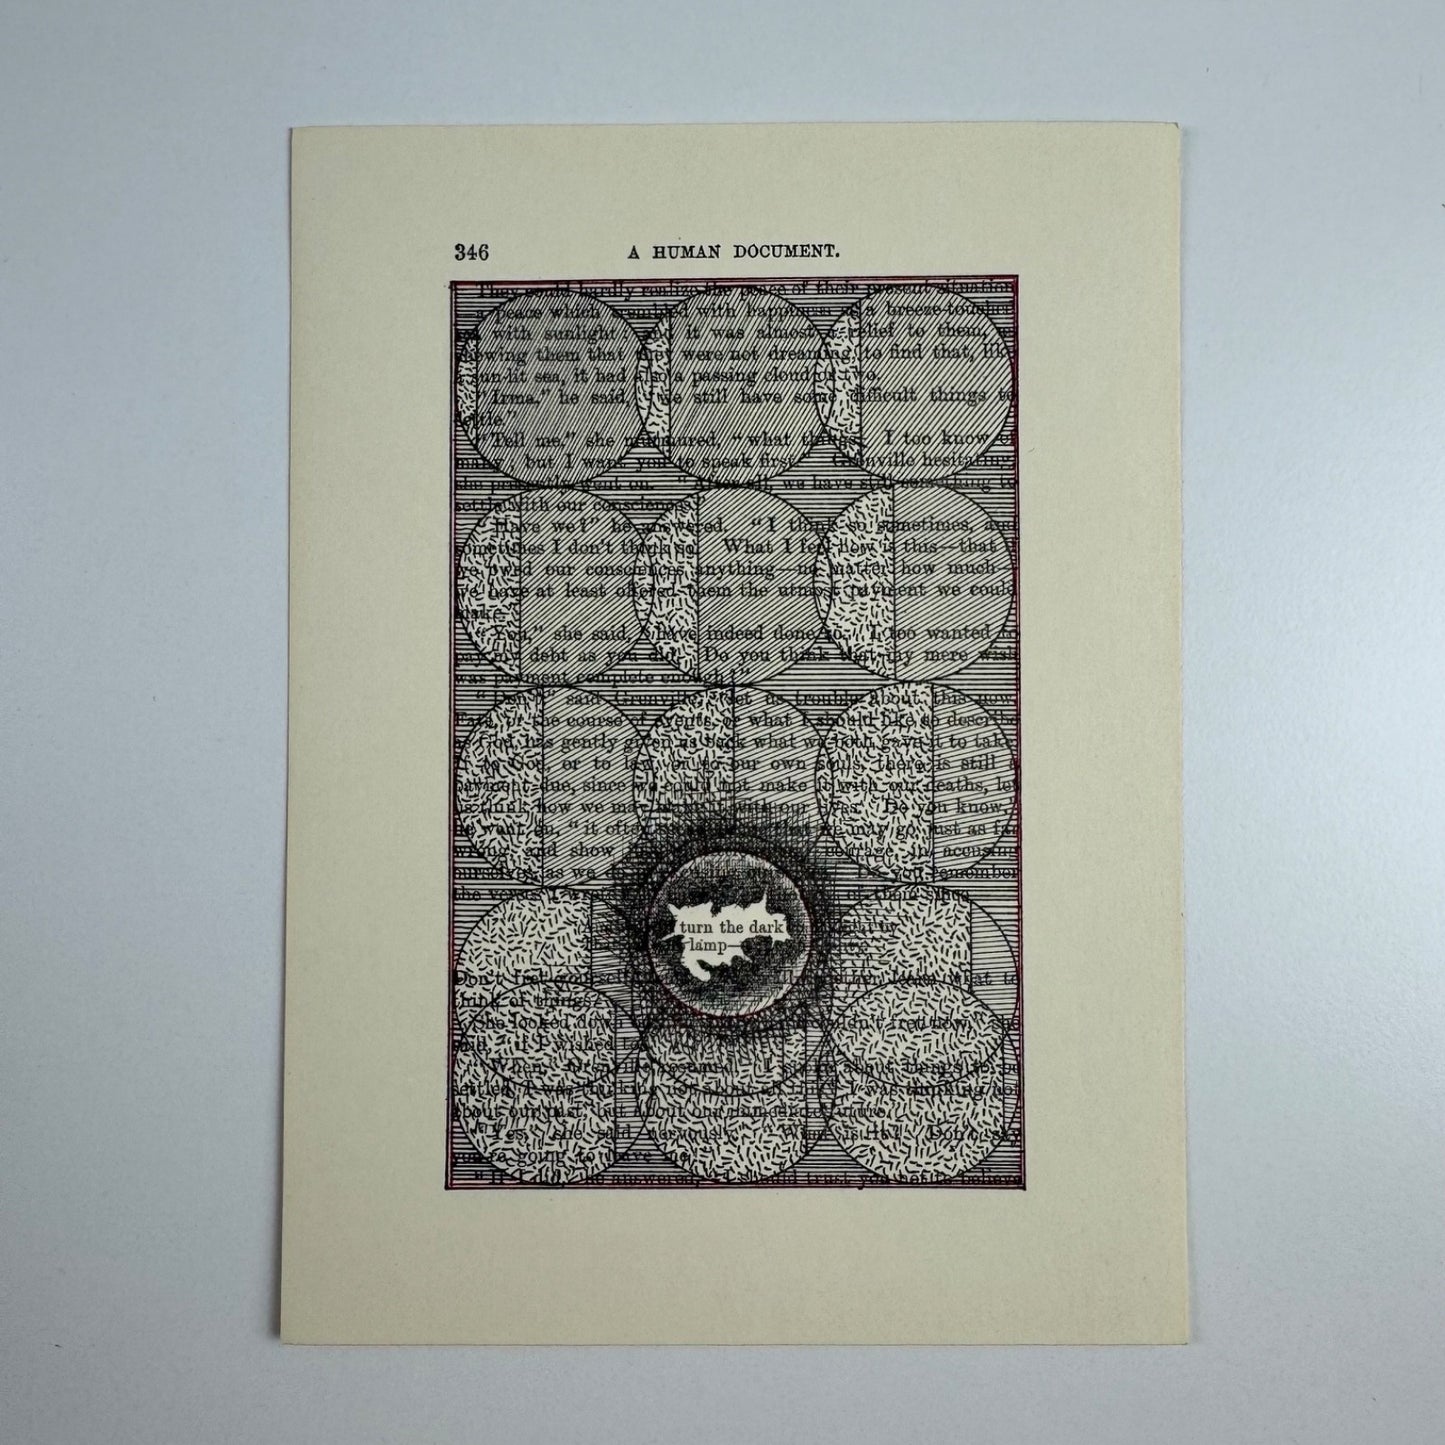 346 A HUMAN DOCUMENT.
They could hardly realize the peace of their present situation
a peace which trembled with happiness as a breeze-touched
with sunlight; and it was almost a relief to them,
showing them that they were not dreaming, to find that, like
sun-lit sea, it had also a passing cloud or two.
"Irma," he said, "we still have some difficult things to
settle."
"Tell me," she murmured, "what things. I too know of
many, but I want you to speak first." Grenville hesitating,
she presently went on. "After all, we have still something to
settle with our consciences."
"Have we?" he answered. "I think so sometimes, and
sometimes I don't think so. What I feel now is this—that if
we owed our consciences anything—no matter how much—
we have at least offered them the utmost payment we could
make."
"You," she said, "have indeed done so. I too wanted to
pay my debt as you did. Do you think that my mere wish
was payment complete enough?"
"Don't," said Grenville, "let us trouble about this now.
Fate, or the course of events, or what I should like to describe
as God, has gently given us back what we both gave it to take.
to God, or to law, or to our own souls, there is still a
payment due, since we could not make it with our deaths, let
us think how we may make it with our lives. Do you know,"
he went on, "it often that we may go just as far
wrong and show courage in accusing
ourselves as we do in Do you remember
the verses I
turn the dark by
lamp—
Don't fret yourself what to
think of things."
She looked down couldn't fret now," she
said, "if I wished to."
"When," Grenville resumed, "I spoke about things to be
settled, I was thinking not about I was thinking not
about our past, but about our immediate future."
"Yes," she said nervously. "What is it? Don't say
you're going to leave me."
"If I did," he answered, "I should trust you not to believe